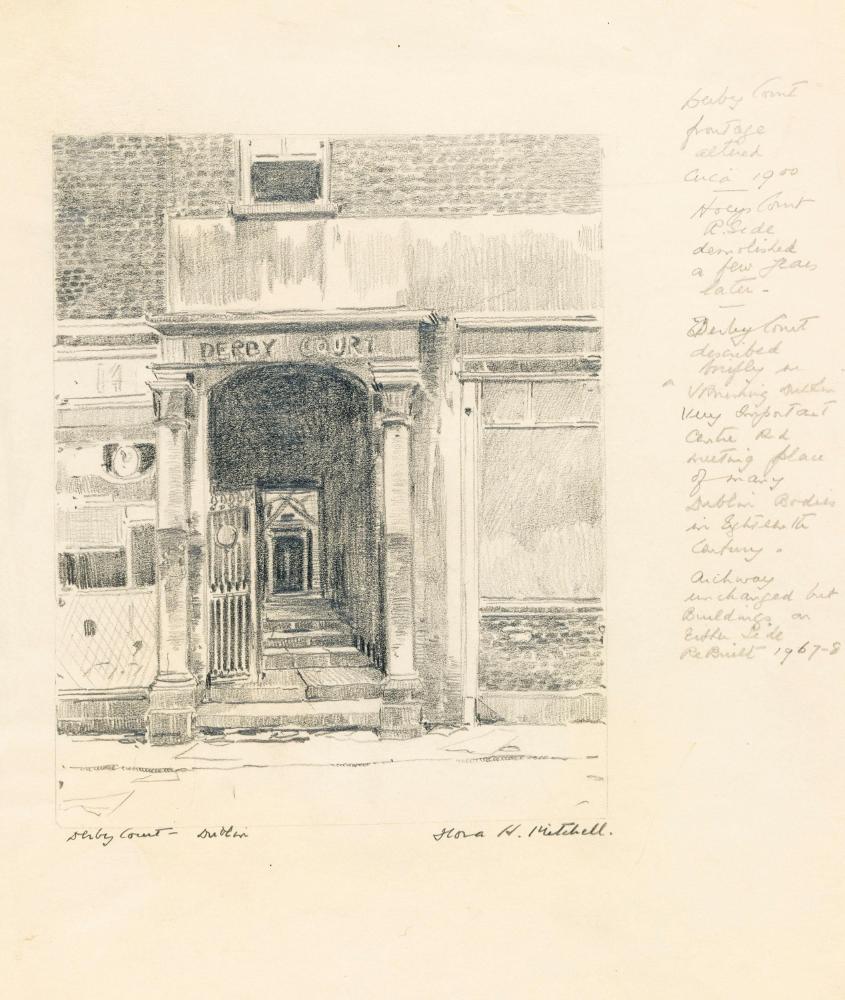 Derby Court
frontage
altered
Circa 1900
Hoeys Court
R. Side
demolished
a few years
later -
Derby Court
described
briefly in
Vanishing Dublin
Very Important
Centre and
meeting place
of many
Dublin Bodies
in Eighteenth
Century.
Archway
unchanged but
Buildings on
Either Side
ReBuilt 1967-8
DERBY COURT
14
Derby Court - Dublin
Flora H. Mitchell.